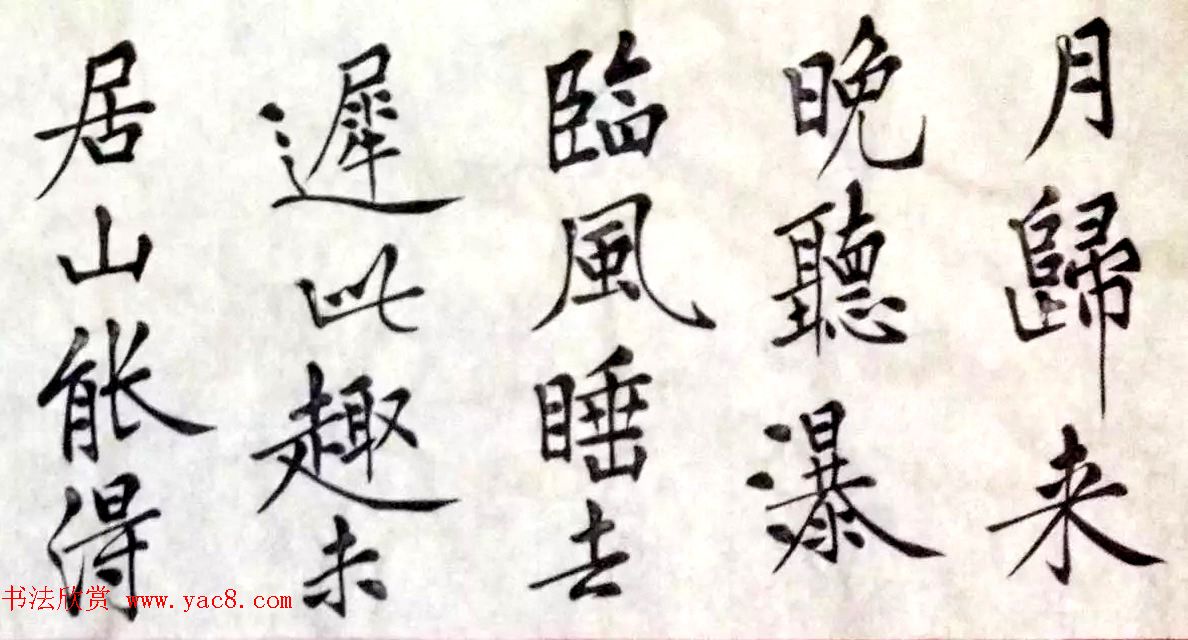 月歸来
晚聽瀑
臨風睡去
遲此趣未
居山能得
书法欣赏 www.yac8.com